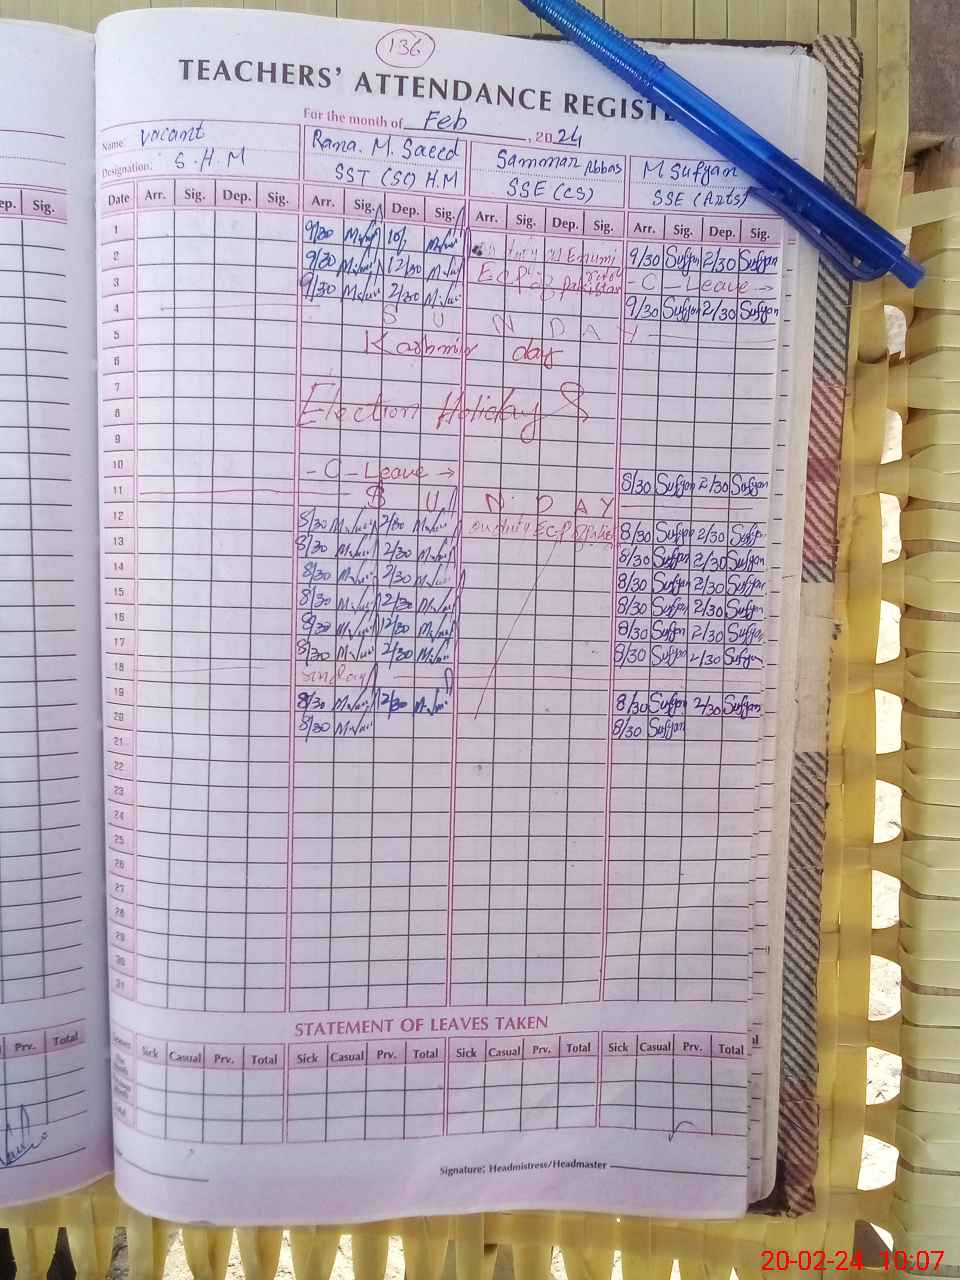 136
TEACHERS' ATTENDANCE REGIST
For the month of Feb, 2024
Name: Vacant Rana. M. Saeed Sammar Abbas M Sufyan
Designation: S.H.M SST (SC) H.M SSE (CS) SSE (Arts)
ep. Sig. Date Arr. Sig. Dep. Sig. Arr. Sig. Dep. Sig. Arr. Sig. Dep. Sig. Arr. Sig. Dep. Sig.
1 9/30
2 9/30 12/30 9/30 Sufyan 2/30 Sufyan
3 9/30 2/30 ECP of Pakistan - C - Leave →
4 S U N D A Y 9/30 Sufyan 2/30 Sufyan
5 Kashmir day
6
7
8 Election Holidays
9
10 - C - Leave → 8/30 Sufyan 2/30 Sufyan
11 S U N D A Y
12 8/30 2/30 on duty ECP 8/30 Sufyan 2/30 Sufyan
13 8/30 2/30 8/30 Sufyan 2/30 Sufyan
14 8/30 2/30 8/30 Sufyan 2/30 Sufyan
15 8/30 12/30 8/30 Sufyan 2/30 Sufyan
16 8/30 12/30 8/30 Sufyan 2/30 Sufyan
17 8/30 2/30 8/30 Sufyan 2/30 Sufyan
18 Sunday
19 8/30 2/30 8/30 Sufyan 2/30 Sufyan
20 8/30 8/30 Sufyan
21
22
23
24
25
26
27
28
29
30
31
STATEMENT OF LEAVES TAKEN
Prv. Total Sick Casual Prv. Total Sick Casual Prv. Total Sick Casual Prv. Total Sick Casual Prv. Total
Signature: Headmistress/Headmaster
20-02-24 10:07